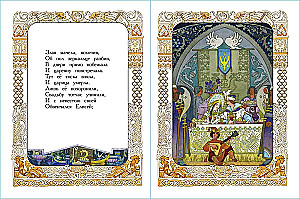 Злая мачеха, вскочив,
Об пол зеркальце разбив,
В двери прямо побежала
И царевну повстречала.
Тут её тоска взяла,
И царица умерла.
Лишь её похоронили,
Свадьбу тотчас учинили,
И с невестою своей
Обвенчался Елисей;